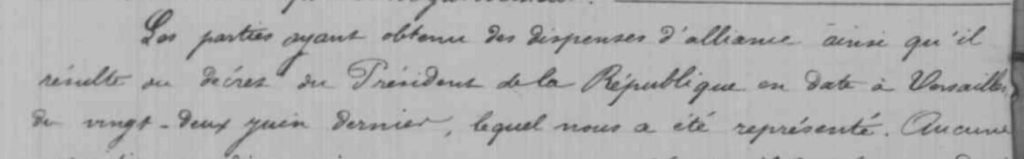 Les parties ayant obtenu des dispenses d'alliance ainsi qu'il
résulte du décret du Président de la République en date à Versailles
du vingt-deux juin dernier, lequel nous a été représenté. Aucune